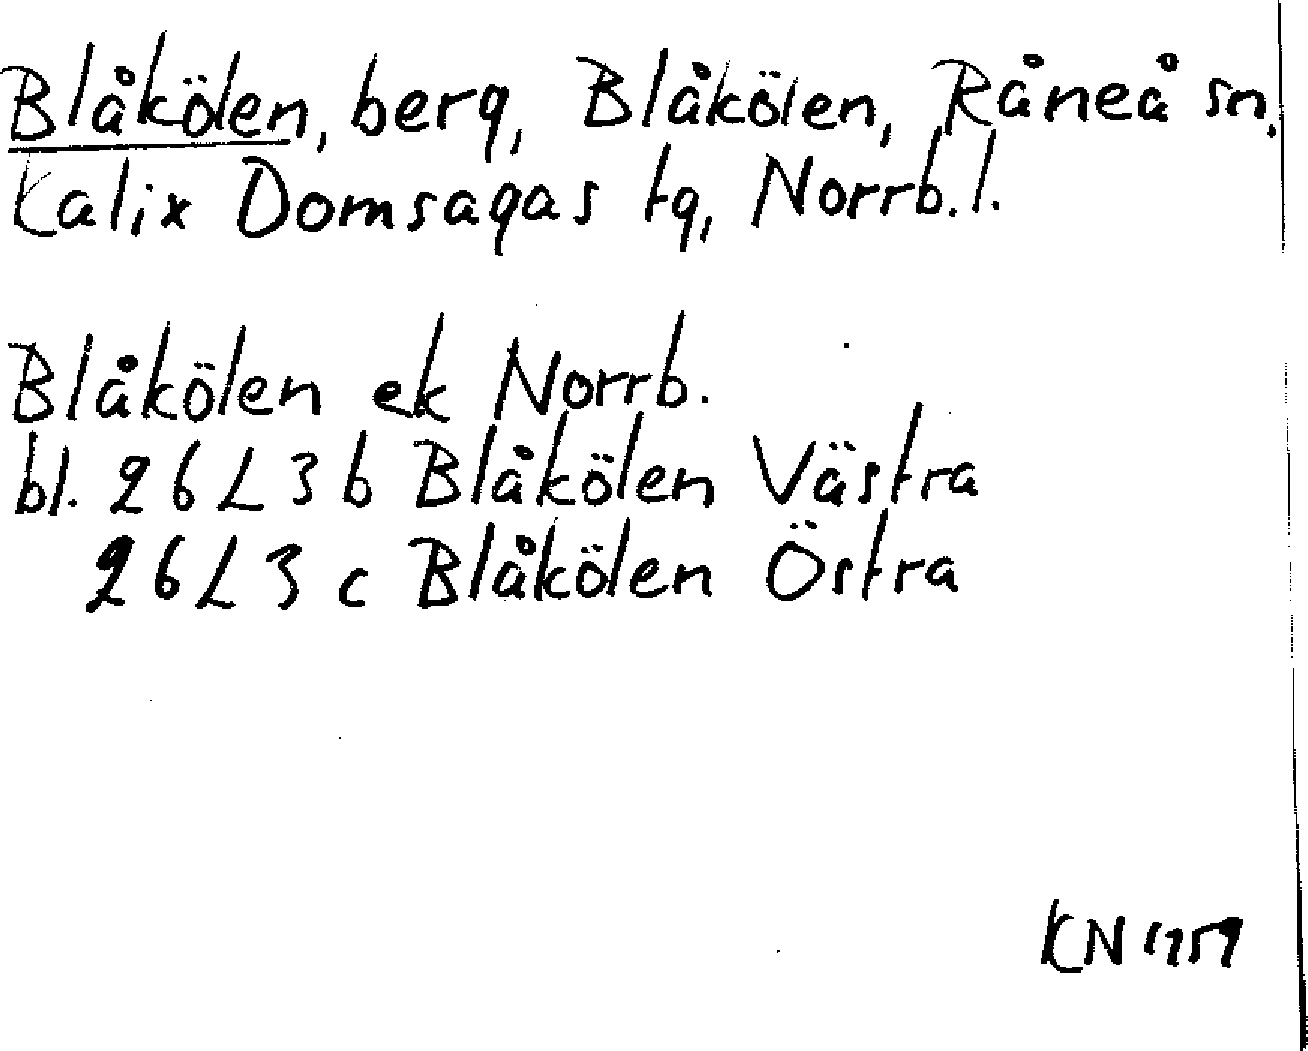 Blåkölen, berg, Blåkölen, Råneå sn,
Kalix Domsagas tg, Norrb.l.
Blåkölen ek Norrb.
bl. 26L3b Blåkölen Västra
26L3c Blåkölen Östra
KN